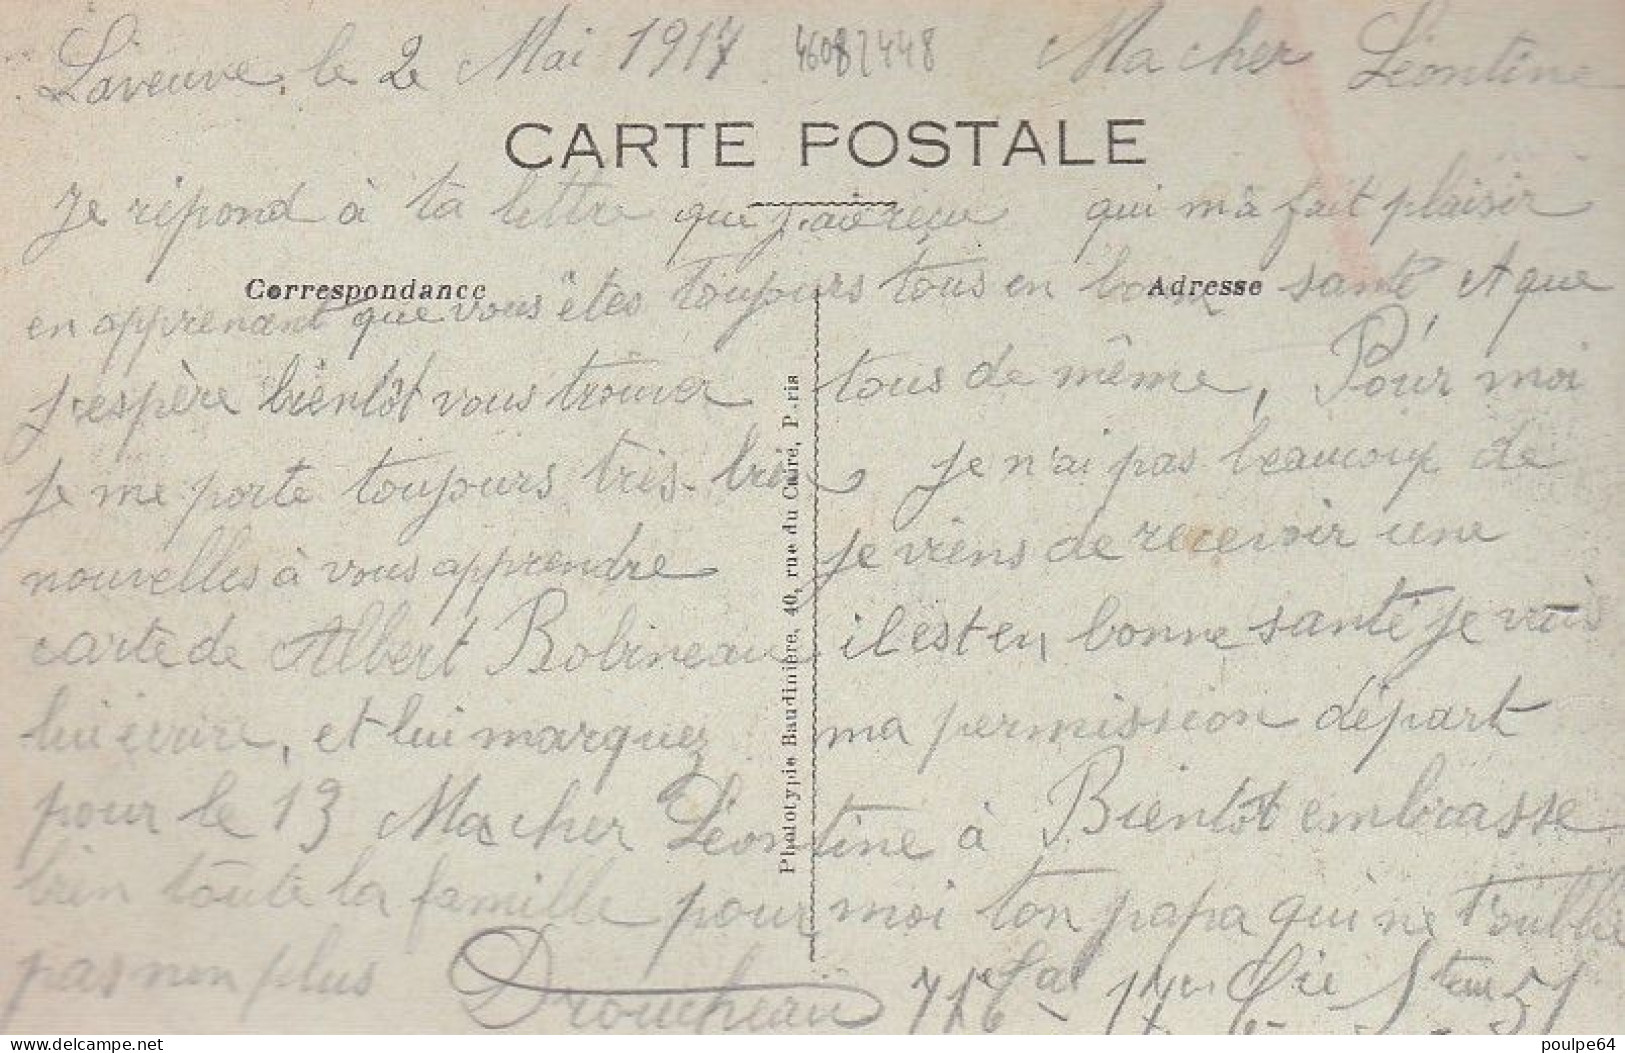 Laveuve, le 2 Mai 1917 46082448 Ma cher Léontine
CARTE POSTALE
Je répond à ta lettre que j'ai reçu qui m'à fait plaisir
Correspondance Adresse
en apprenant que vous êtes toujours tous en bonne santé, A que
j'espère bientôt vous trouver tous de même, Pour moi
je me porte toujours très-bien je n'ai pas beaucoup de
nouvelles à vous apprendre je viens de recevoir une
carte de Albert Robineau il est en bonne santé je vais
lui écrire, et lui marquez ma permission départ
pour le 13 Ma cher Léontine à Bientôt embrasse
bien toute la famille pour moi ton papa qui ne t'oublie
pas non plus Droucheau 71e tal 17e Cie 51
Phototypie Baudinière, 40, rue du Caire, Paris
delcampe.net
poulpe64